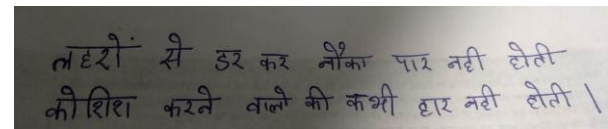 लहरों से डर कर नौका पार नही होती
कोशिश करने वालो की कभी हार नही होती।